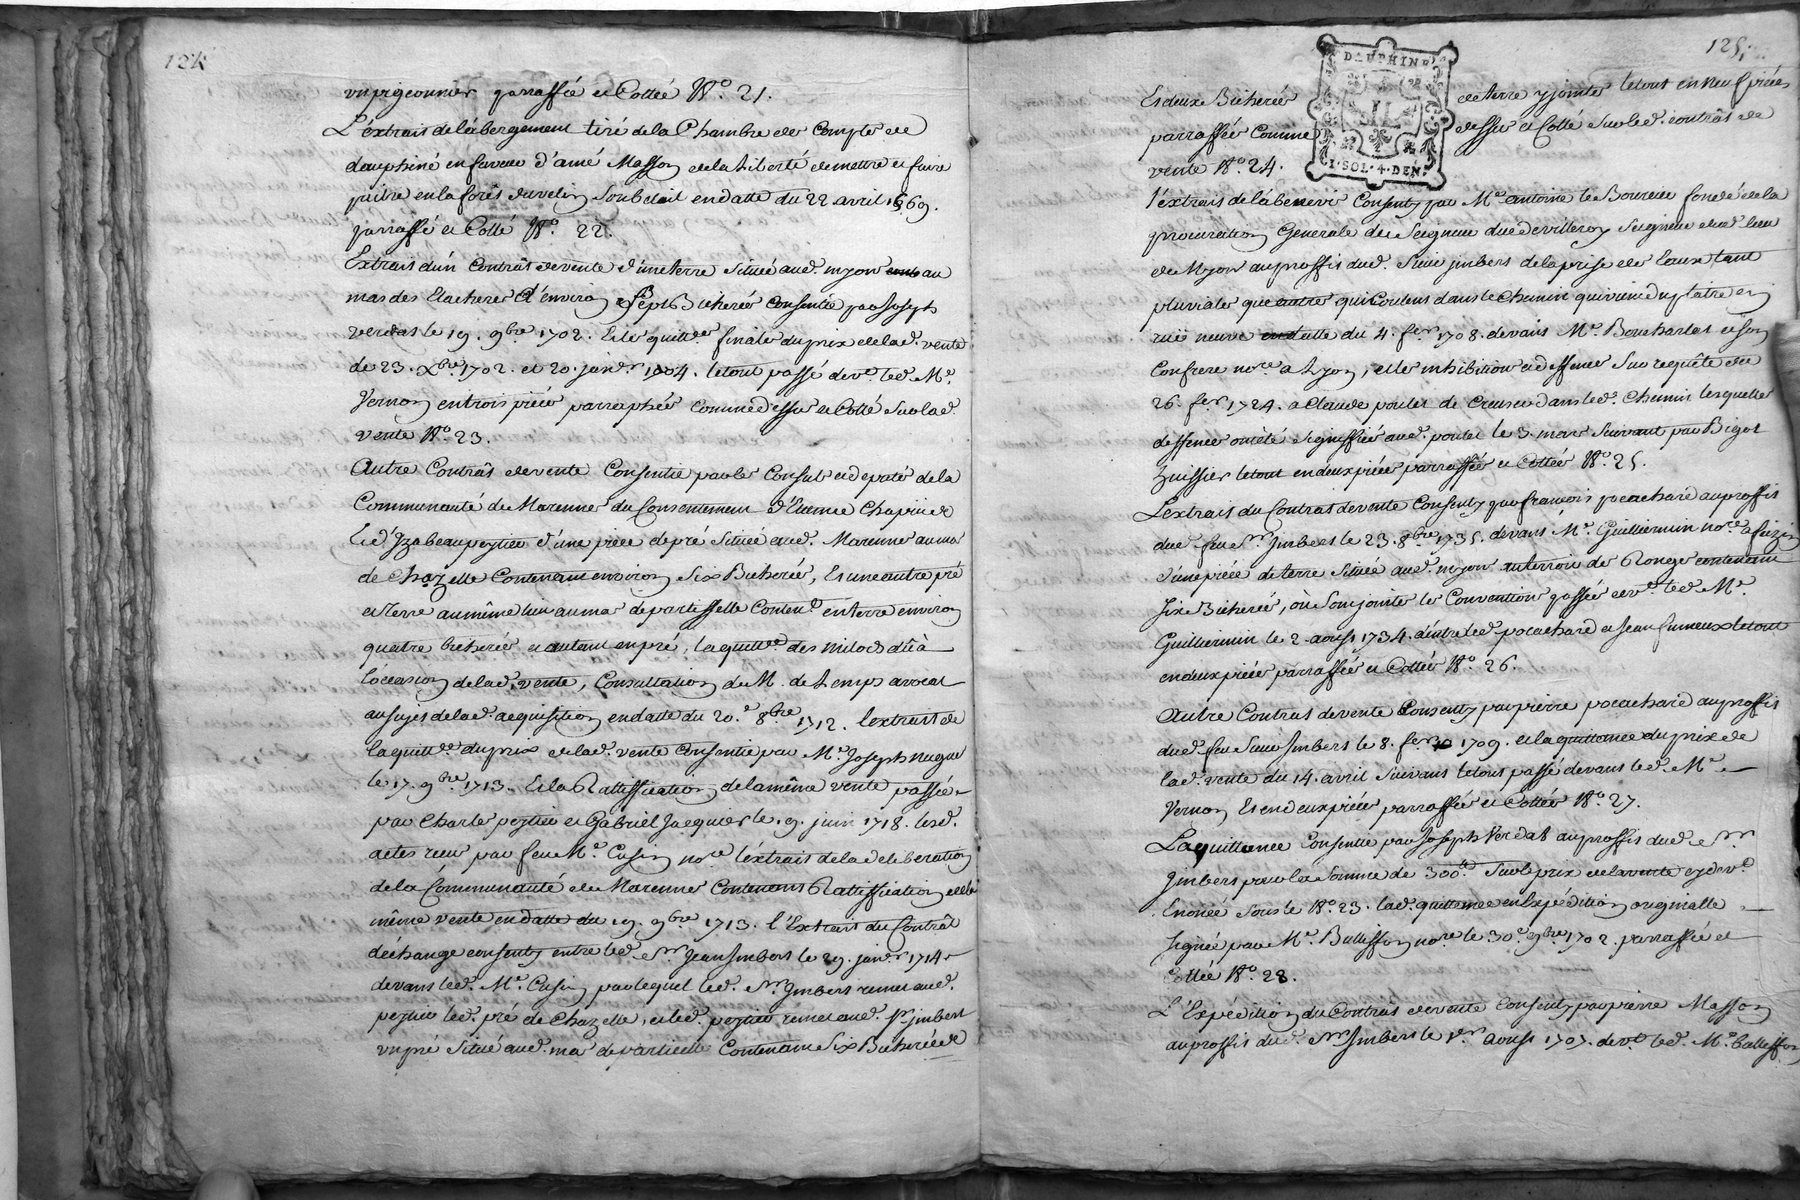 124
un pigeonnier parraffé et Cotteé N.° 21.
L'éxtrait de l'abergement tiré de la Chambre des Comptes de
dauphiné en faveur d'amé Masson de la Liberté de mettre et faire
paître en la forêt de velin Son betail en datte du 22 avril 1569.
parraffé et Cotté N.° 22.
Extrait d'un Contrât de vente d'une terre Situeé aud. myon au
mas des Elacheres d'environ Sept Bicheréé Consentie par Joseph
verdat le 19. 9bre 1702. Et les quitt.ces finales du prix de lad. vente
de 23. Xbre 1702. et 20. janv.r 1704. le tout passé dev.t led. M.e
Vernon en trois piéces parraphées Comme dessus et Cotté Sur lad.
vente N.° 23.
Autre Contrât de vente Consentie par les Consuls et deputé de la
Communauté de Marennes du Consentement d'Etienne Chapuis et
Et d'Yzabeau peytieu d'une piéce de pré Situéé aud. Marennes au mas
de Chazelle Contenant environ Six Bicheréé, Et une autre pré
et terre au même lieu au mas de partisselle Conten.t en terre environ
quatre bicheréé et autant en pré, la quitt.ce des milods dû à
l'occasion de lad. vente, Consultation de M. de Lemps avocat
au sujet de lad. acquisition en datte du 20.e 8bre 1712. l'extrait de
la quitt.ce du prix de lad. vente Consentie par M.e Joseph nugue
le 17. 9bre 1713. Et la Rattiffication de la même vente passéé
par Charle peytieu et Gabriel Jacquier le 9. juin 1718. lesd.
actes receu par feu M.e Cusin no.re l'éxtrait de la deliberation
de la Communauté de Marennes Contenant Rattiffication de la
même vente en datte du 19. 9bre 1713. l'Extrait du Contrât
d'échange consenty entre led. S.r Jean Imbert le 29. janv.r 1714
devant led. M.e Cusin par lequel led. S.r Imbert remet aud.
peytieu led. pré de Chazelle, et led. peytieu remet aud. S.r imbert
un pré Situé aud. mas de partisselle Contenant Six Bicheréé
125
DAUPHINE
1·SOL·4·DEN.
Et deux Bicheréé de terre y jointes le tout en neuf piéces
parrafféés Comme dessus et Cotté Sur led. contrât de
vente N.° 24.
l'éxtrait de l'abenevis Consenty par M.e antoine le Bourcier fondé de la
procuration Generale du Seigneur duc de villeroy Seigneur dud. lieu
de Myon au proffit dud. Sieur jmbert de la prise des Eaux tant
pluviales que qui Coulent dans le Chemin qui vient du plâtre en
ruë neuve du 4. fev.r 1708. devant M.e Boucharlat et Son
Confrere no.re a Lyon, et les inhibitions et deffences Sur requête du
26. fev.r 1724. a Claude poulet de Creuser dans led. Chemin lesquelles
deffences ont été Signiffiéés aud. poulet le 3 mars Suivant par Bigot
huissier le tout en deux piéces parrafféés et Cottéés N.° 25.
L'extrait du Contrat de vente Consenty par françois pocachard au proffit
dud. feu S.r Jmbert le 23. 8bre 1735. devant M.e Guilliermin no.re a feizin
d'une piéce de terre Situéé aud. myon au terroir de Ronge contenant
Six Bicheréé, où Sont jointes les Conventions passéés dev.t led. M.e
Guilliermin le 2. aoust 1734. d'entre led. pocachard et Jean fumeux le tout
en deux piéces parrafféés et Cottéés N.° 26.
Autre Contrat de vente Consenty par pierre pocachard au proffit
dud. feu Sieur Jmbert le 8. fev.r 1709. et la quittance du prix de
lad. vente du 14. avril Suivant le tout passé devant led. M.e
Vernon Et en deux piéces parrafféés et Cottéés N.° 27.
La quittance Consentie par Joseph Verdat au proffit dud. S.r
Jmbert pour la Somme de 300.# Sur le prix de la vente cy dev.t
Enoncéé Sous le N.° 23. lad. quittance en Expédition originalle
Signéé par M.e Balleffon no.re le 30.e 9bre 1702. parrafféé et
Cottéé N.° 28.
L'Expédition du Contrât de vente Consenty par pierre Masson
au proffit dud. S.r Jmbert le 1.er aoust 1707. dev.t led. M.e balleffon